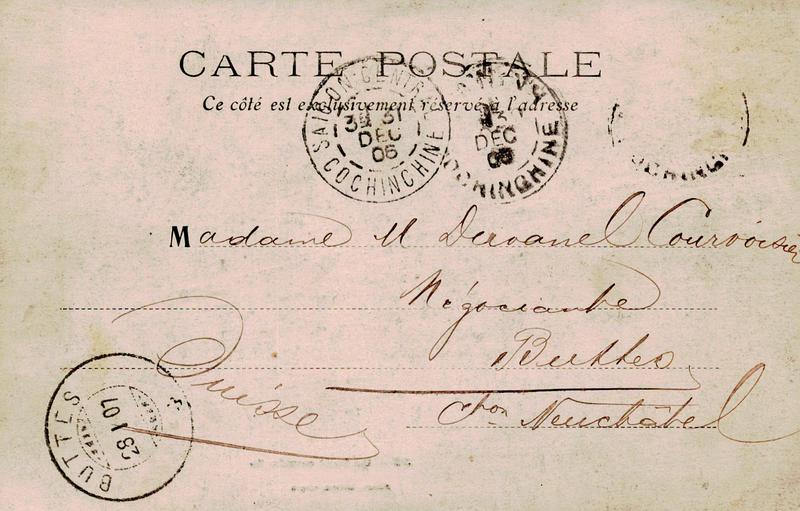 CARTE POSTALE
Ce côté est exclusivement réservé à l'adresse
SAIGON-CENTRAL
31
DEC
06
COCHINCHINE
DEC
COCHINCHINE
Madame M Courvoisier
Négociante
Buttes
Suisse
Cton Neuchâtel
BUTTES
28 I 07